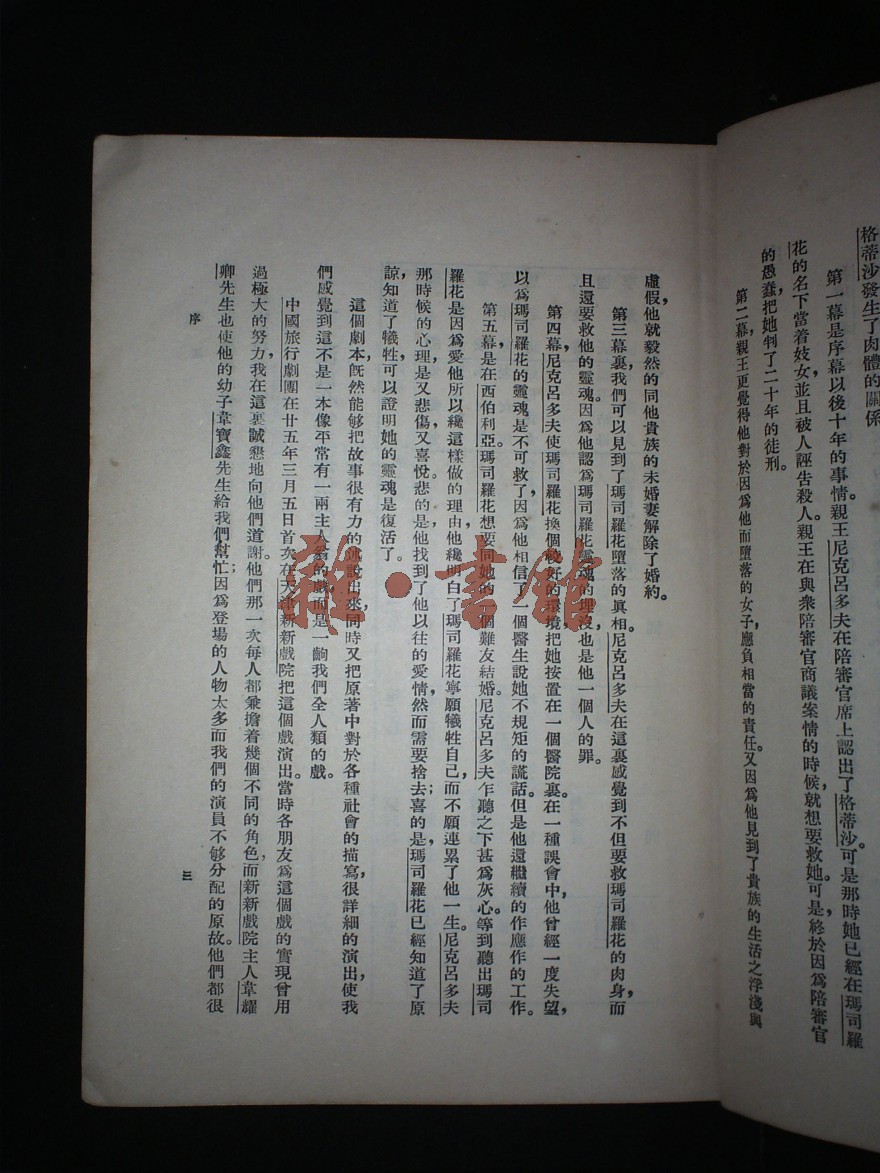 格蒂沙發生了肉體的關係
第一幕是序幕以後十年的事情。親王尼克呂多夫在陪審官席上認出了格蒂沙。可是那時她已經在瑪司羅
花的名下當着妓女，並且被人誣告殺人。親王在與衆陪審官商議案情的時候，就想要救她。可是，終於因爲陪審官
的愚蠢把她判了二十年的徒刑。
第二幕，親王更覺得他對於因爲他而墮落的女子，應負相當的責任。又因爲他見到了貴族的生活之浮淺與
虛假，他就毅然的同他貴族的未婚妻解除了婚約。
第三幕裏，我們可以見到了瑪司羅花墮落的眞相。尼克呂多夫在這裏感覺到不但要救瑪司羅花的肉身，而
且還要救他的靈魂。因爲他認爲瑪司羅花靈魂的埋沒也是他一個人的罪。
第四幕，尼克呂多夫使瑪司羅花換個較好的環境把她按置在一個醫院裏。在一種誤會中，他曾經一度失望，
以爲瑪司羅花的靈魂是不可救了，因爲他相信了一個醫生說她不規矩的謊話。但是他還繼續的作應作的工作。
第五幕是在西伯利亞。瑪司羅花想要同她的一個難友結婚。尼克呂多夫乍聽之下甚爲灰心。等到聽出瑪司
羅花是因爲愛他所以纔這樣做的理由，他纔明白了瑪司羅花寧願犧牲自己，而不願連累了他一生。尼克呂多夫
那時候的心理是又悲傷，又喜悅。悲的是，他找到了他以往的愛情，然而需要捨去；喜的是，瑪司羅花已經知道了原
諒，知道了犧牲，可以證明她的靈魂是復活了。
這個劇本，既然能够把故事很有力的述說出來，同時又把原著中對於各種社會的描寫，很詳細的演出，使我
們感覺到這不是一本像平常有一兩主人翁的戲，而是一齣我們全人類的戲。
中國旅行劇團在廿五年三月五日首次在天津新新戲院把這個戲演出。當時各朋友爲這個戲的實現曾用
過極大的努力，我在這裏誠懇地向他們道謝。他們那一次每人都兼擔着幾個不同的角色，而新新戲院主人韋耀
卿先生也使他的幼子韋寶鑫先生給我們幫忙；因爲登場的人物太多而我們的演員不够分配的原故。他們都很
序
三
雜·書館